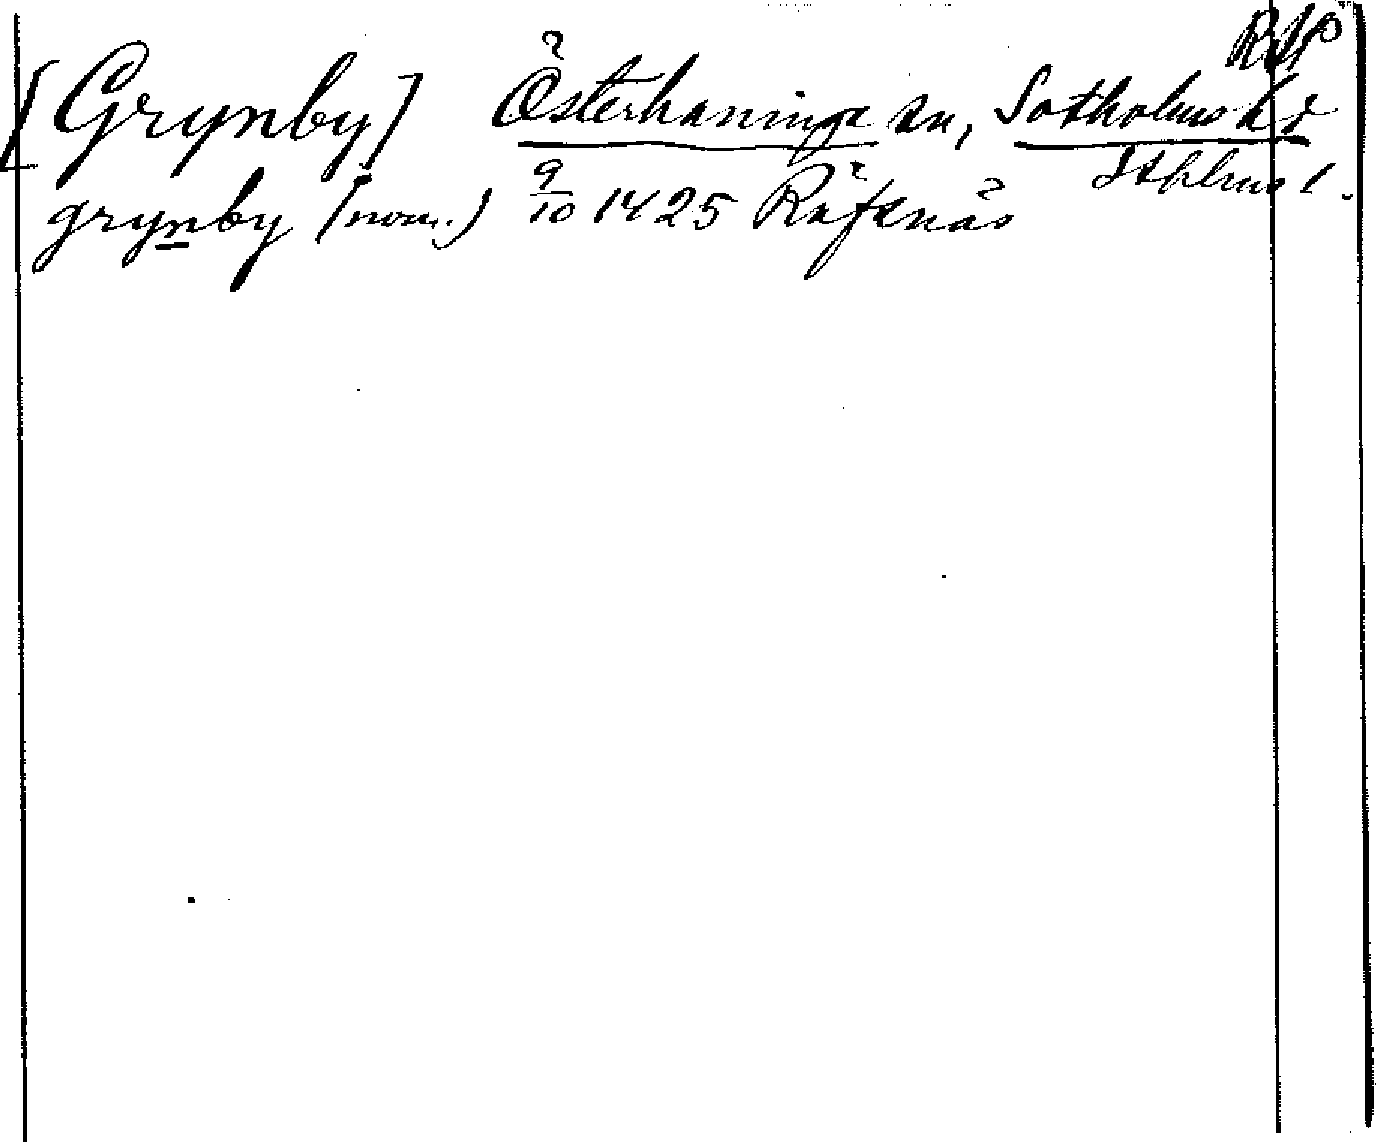 RAP
[Grynby] Österhaninge sn, Sotholms hd
Sthlms l.
grynby (nom.) 9/10 1425 Räfsnäs